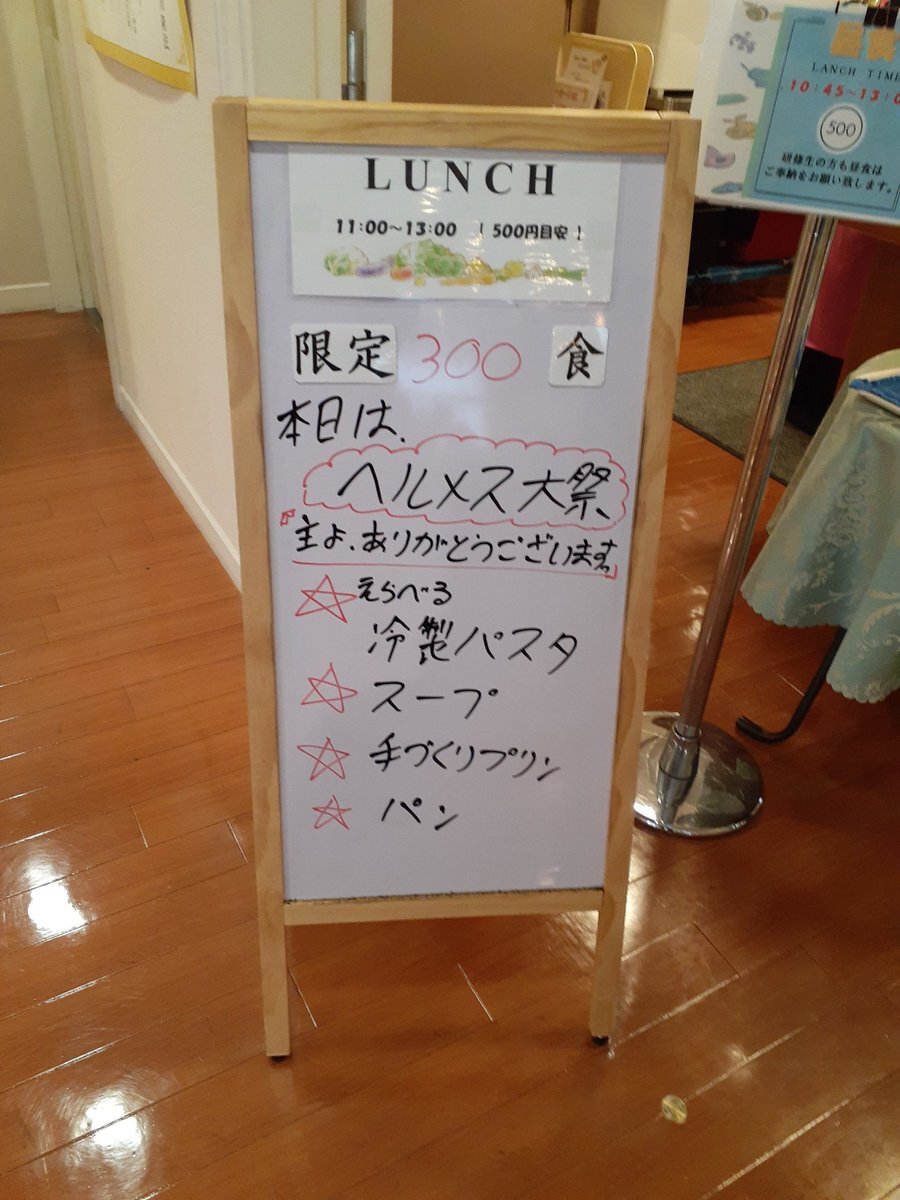 LUNCH
11:00～13:00 ( 500円目安 )
限定 300 食
本日は、
ヘルメス大祭
主よ、ありがとうございます。
☆えらべる
冷製パスタ
☆スープ
☆手づくりプリン
☆パン
LANCH TIME
10:45～13:0
500
研修生の方も昼食は
ご奉納をお願い致します。